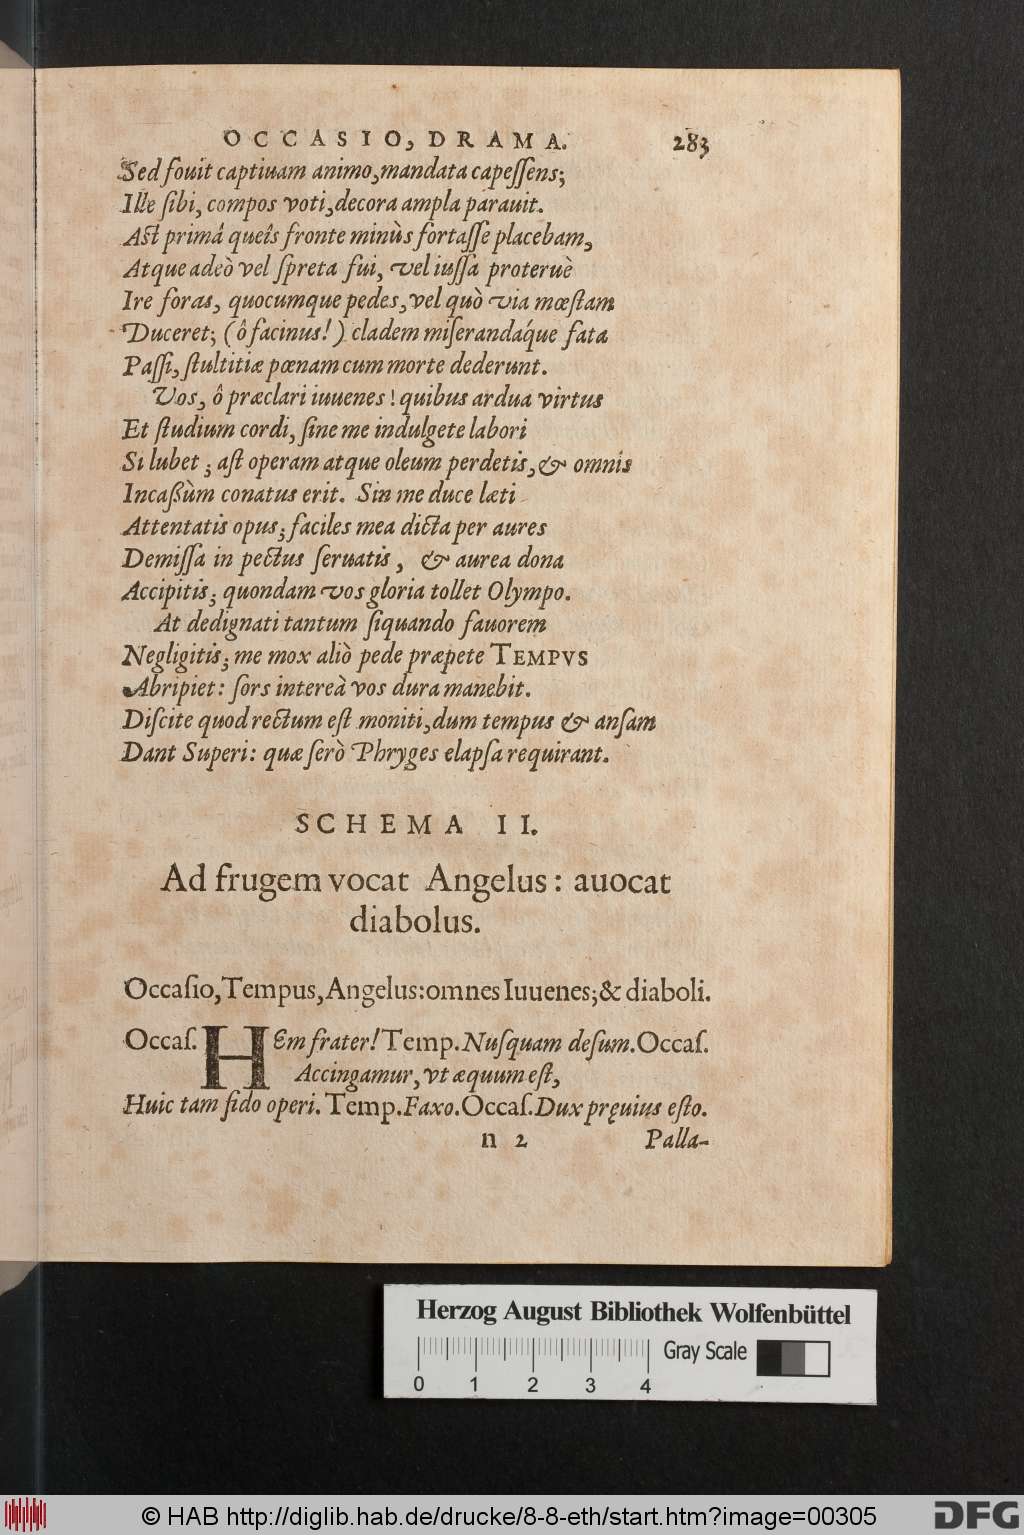 OCCASIO, DRAMA. 283
Sed fouit captiuam animo, mandata capeſſens;
Ille ſibi, compos voti, decora ampla parauit.
Aſt primâ queîs fronte minùs fortaſſe placebam,
Atque adeò vel ſpreta fui, vel iuſſa proteruè
Ire foras, quocumque pedes, vel quò via mœſtam
Duceret; (ô facinus!) cladem miſerandáque fata
Paſſi, ſtultitiæ pœnam cum morte dederunt.
Vos, ô præclari iuuenes! quibus ardua virtus
Et ſtudium cordi, ſine me indulgete labori
Si lubet; aſt operam atque oleum perdetis, & omnis
Incaßùm conatus erit. Sin me duce læti
Attentatis opus; faciles mea dicta per aures
Demiſſa in pectus ſeruatis, & aurea dona
Accipitis; quondam vos gloria tollet Olympo.
At dedignati tantum ſiquando fauorem
Negligitis; me mox aliò pede præpete TEMPVS
Abripiet: ſors intereà vos dura manebit.
Diſcite quod rectum eſt moniti, dum tempus & anſam
Dant Superi: quæ ſerò Phryges elapſa requirant.
SCHEMA II.
Ad frugem vocat Angelus: auocat
diabolus.
Occaſio, Tempus, Angelus: omnes Iuuenes; & diaboli.
Occaſ. HEm frater! Temp. Nuſquam deſum. Occaſ.
Accingamur, vt æquum eſt,
Huic tam fido operi. Temp. Faxo. Occaſ. Dux pręuius eſto.
n 2 Palla-
Herzog August Bibliothek Wolfenbüttel
Gray Scale
0 1 2 3 4
© HAB http://diglib.hab.de/drucke/8-8-eth/start.htm?image=00305
DFG